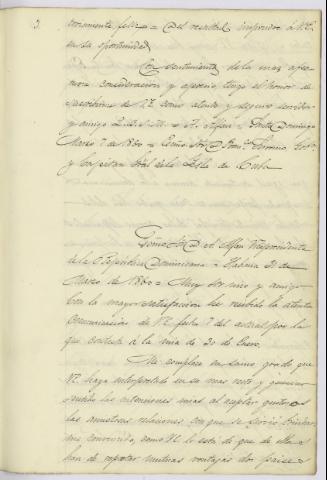 3.
ramente feliz = Del resultado impondré á V.E.
en su oportunidad
Con sentimientos de la mas afec-
tuosa consideracion y aprecio, tengo el honor de
suscribirme de V.E. como atento y seguro servidor
y amigo Q.B.S.M. = A. Alfau = Santo Domingo
Marzo 7 de 1860 = Excmo. Sor. D. Franco. Serrano Gobr.
y Capitan Gral de la Isla de Cuba
Excmo Sr. D. A. Alfau Vicepresidente
de la República Dominicana = Habana 21 de
Marzo de 1860 = Muy Sor mio y amigo
Con la mayor satisfaccion he recibido la atenta
comunicacion de V.E. fecha 7 del actual por la
que contesta á la mia de 20 de Enero.
Me complazco en sumo grado que
V.E. haya interpretado en su mas recto y genuino
sentido las intenciones mias al aceptar gustoso
las amistosas relaciones con que se sirvió brindar-
me, convencido, como V.E. lo está de que de ellas
han de reportar mutuas ventajas dos paises